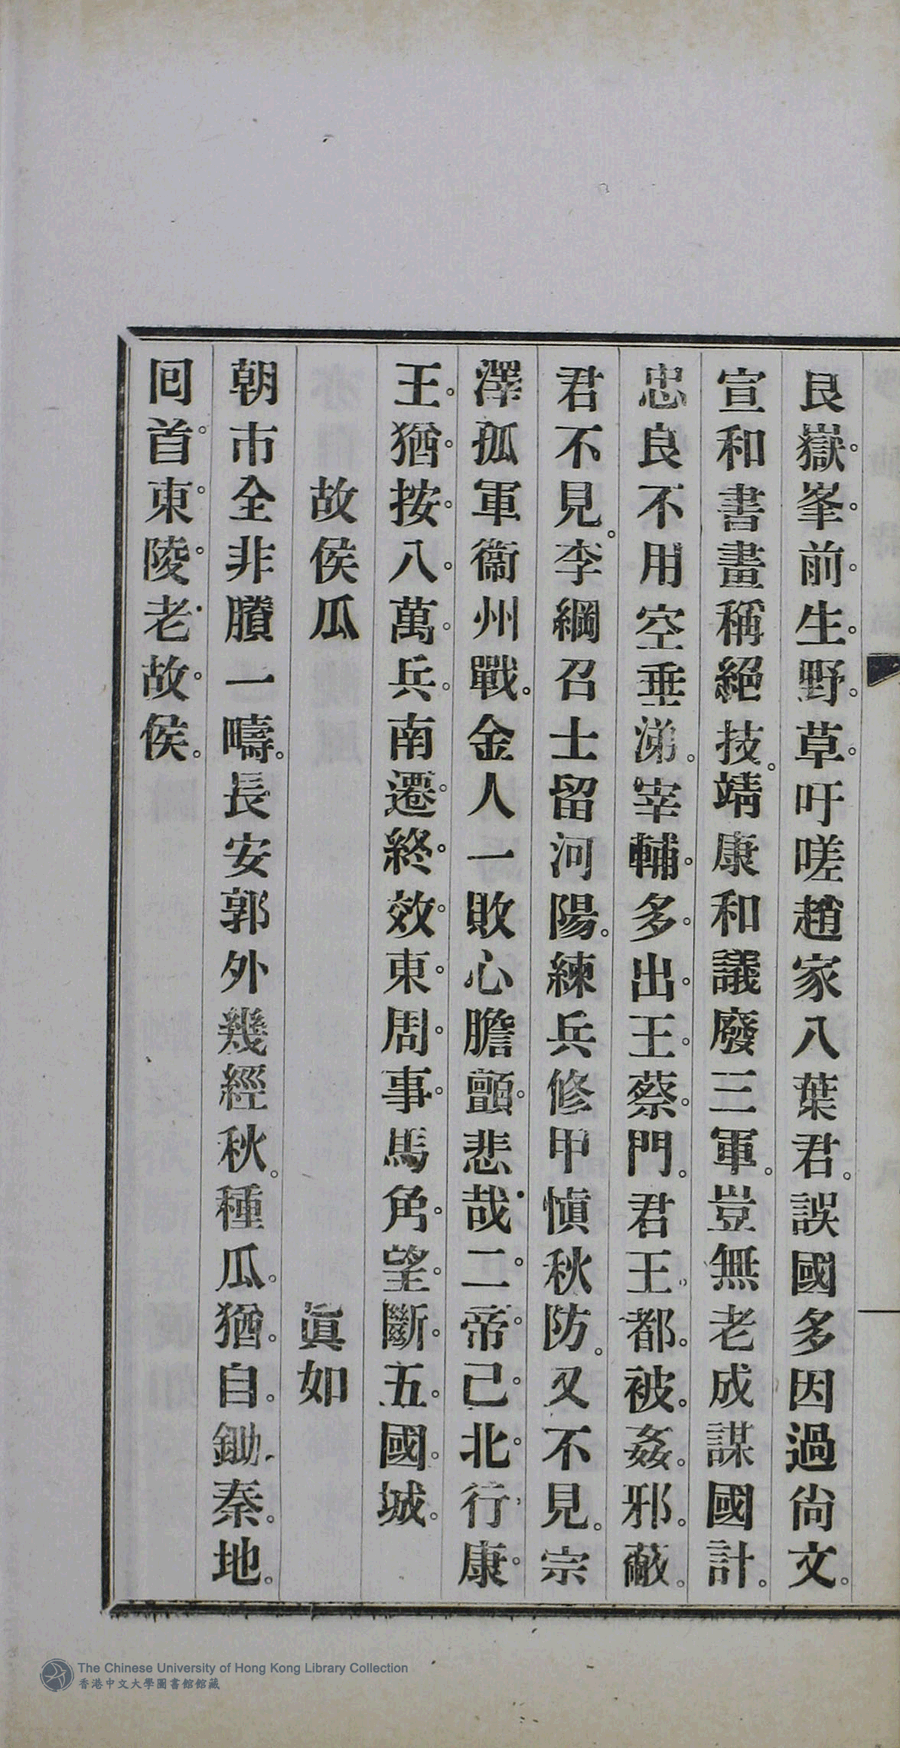 艮嶽峯前生野草吁嗟趙家八葉君誤國多因過尙文
宣和書畫稱絕技靖康和議廢三軍豈無老成謀國計
忠良不用空垂涕宰輔多出王蔡門君王都被姦邪蔽
君不見李綱召士留河陽練兵修甲愼秋防又不見宗
澤孤軍衞州戰金人一敗心膽顫悲哉二帝已北行康
王猶按八萬兵南遷終效東周事馬角望斷五國城
故侯瓜 眞如
朝市全非賸一疇長安郭外幾經秋種瓜猶自鋤秦地
囘首東陵老故侯
The Chinese University of Hong Kong Library Collection
香港中文大學圖書館館藏